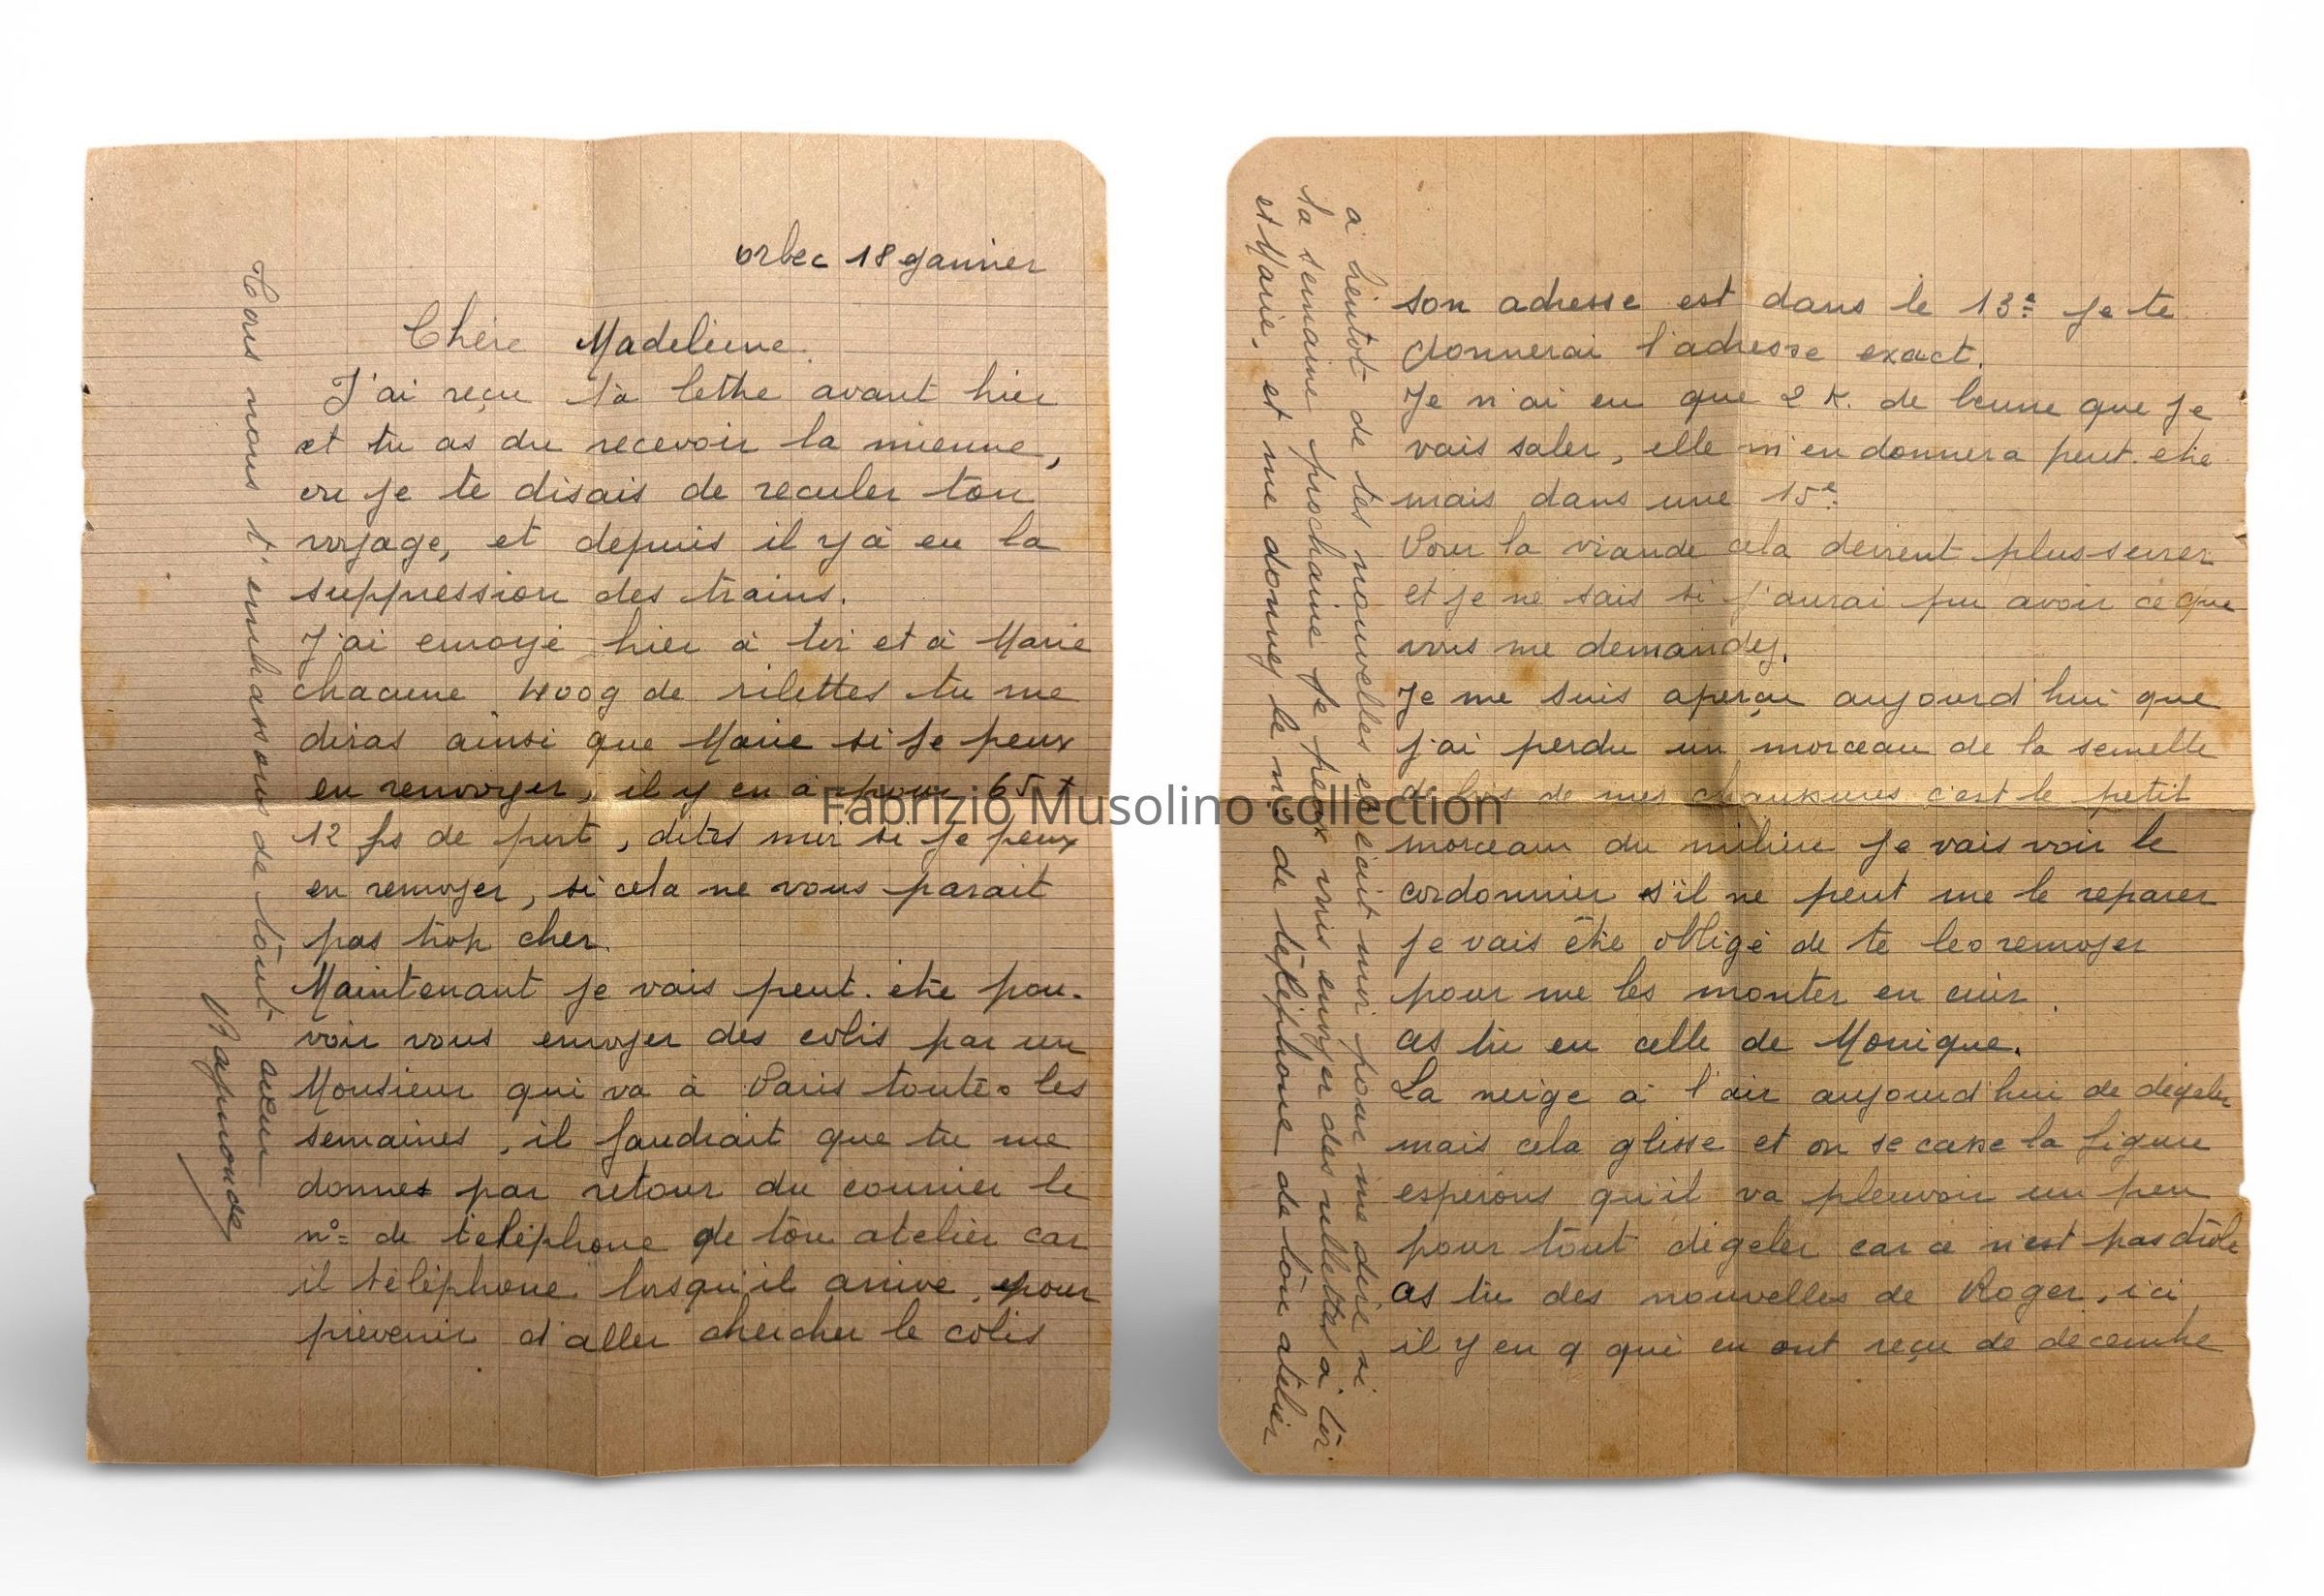 Orbec 18 Janvier
Chère Madeleine.
J'ai reçu ta lettre avant hier
et tu as du recevoir la mienne,
ou je te disais de reculer ton
voyage, et depuis il y à eu la
suppression des trains.
J'ai envoyé hier à toi et à Marie
chacune 400g de rilettes tu me
diras ainsi que Marie si je peux
en renvoyer, il y en à pour 65 +
12 fs de port, dites moi si je peux
en renvoyer, si cela ne vous parait
pas trop cher.
Maintenant je vais peut. être pou-
voir vous envoyer des colis par un
Monsieur qui va à Paris toutes les
semaines, il faudrait que tu me
donnes par retour du courrier le
n° de téléphone de ton atelier car
il téléphone lorsqu'il arrive, pour
prévenir d'aller chercher le colis
Tous nous t'embrassons de tout cœur
Raymonde
son adresse est dans le 13e je te
donnerai l'adresse exact.
Je n'ai eu que 2 K. de beurre que je
vais saler, elle m'en donnera peut. etre
mais dans une 15e.
Pour la viande cela devient plus serrer
et je ne sais si j'aurai pu avoir ce que
vous me demandez.
Je me suis aperçu aujourd'hui que
j'ai perdu un morceau de la semelle
de bois de mes chaussures c'est le petit
morceau du milieu je vais voir le
cordonnier s'il ne peut me le reparer
je vais être obligé de te les renvoyer
pour me les monter en cuir.
as tu eu celle de Monique.
La neige à l'air aujourd'hui de dégeler
mais cela glisse et on se casse la figure
esperons qu'il va pleuvoir un peu
pour tout dégeler car ce n'est pas drôle
as tu des nouvelles de Roger, ici
il y en a qui en ont reçu de decembre
a bientot de tes nouvelles ecrivant moi pour me dire si
la semaine prochaine je peux vous envoyer des rillettes à toi
et Marie, et me donnez le n° de téléphone de ton atelier
Fabrizio Musolino collection